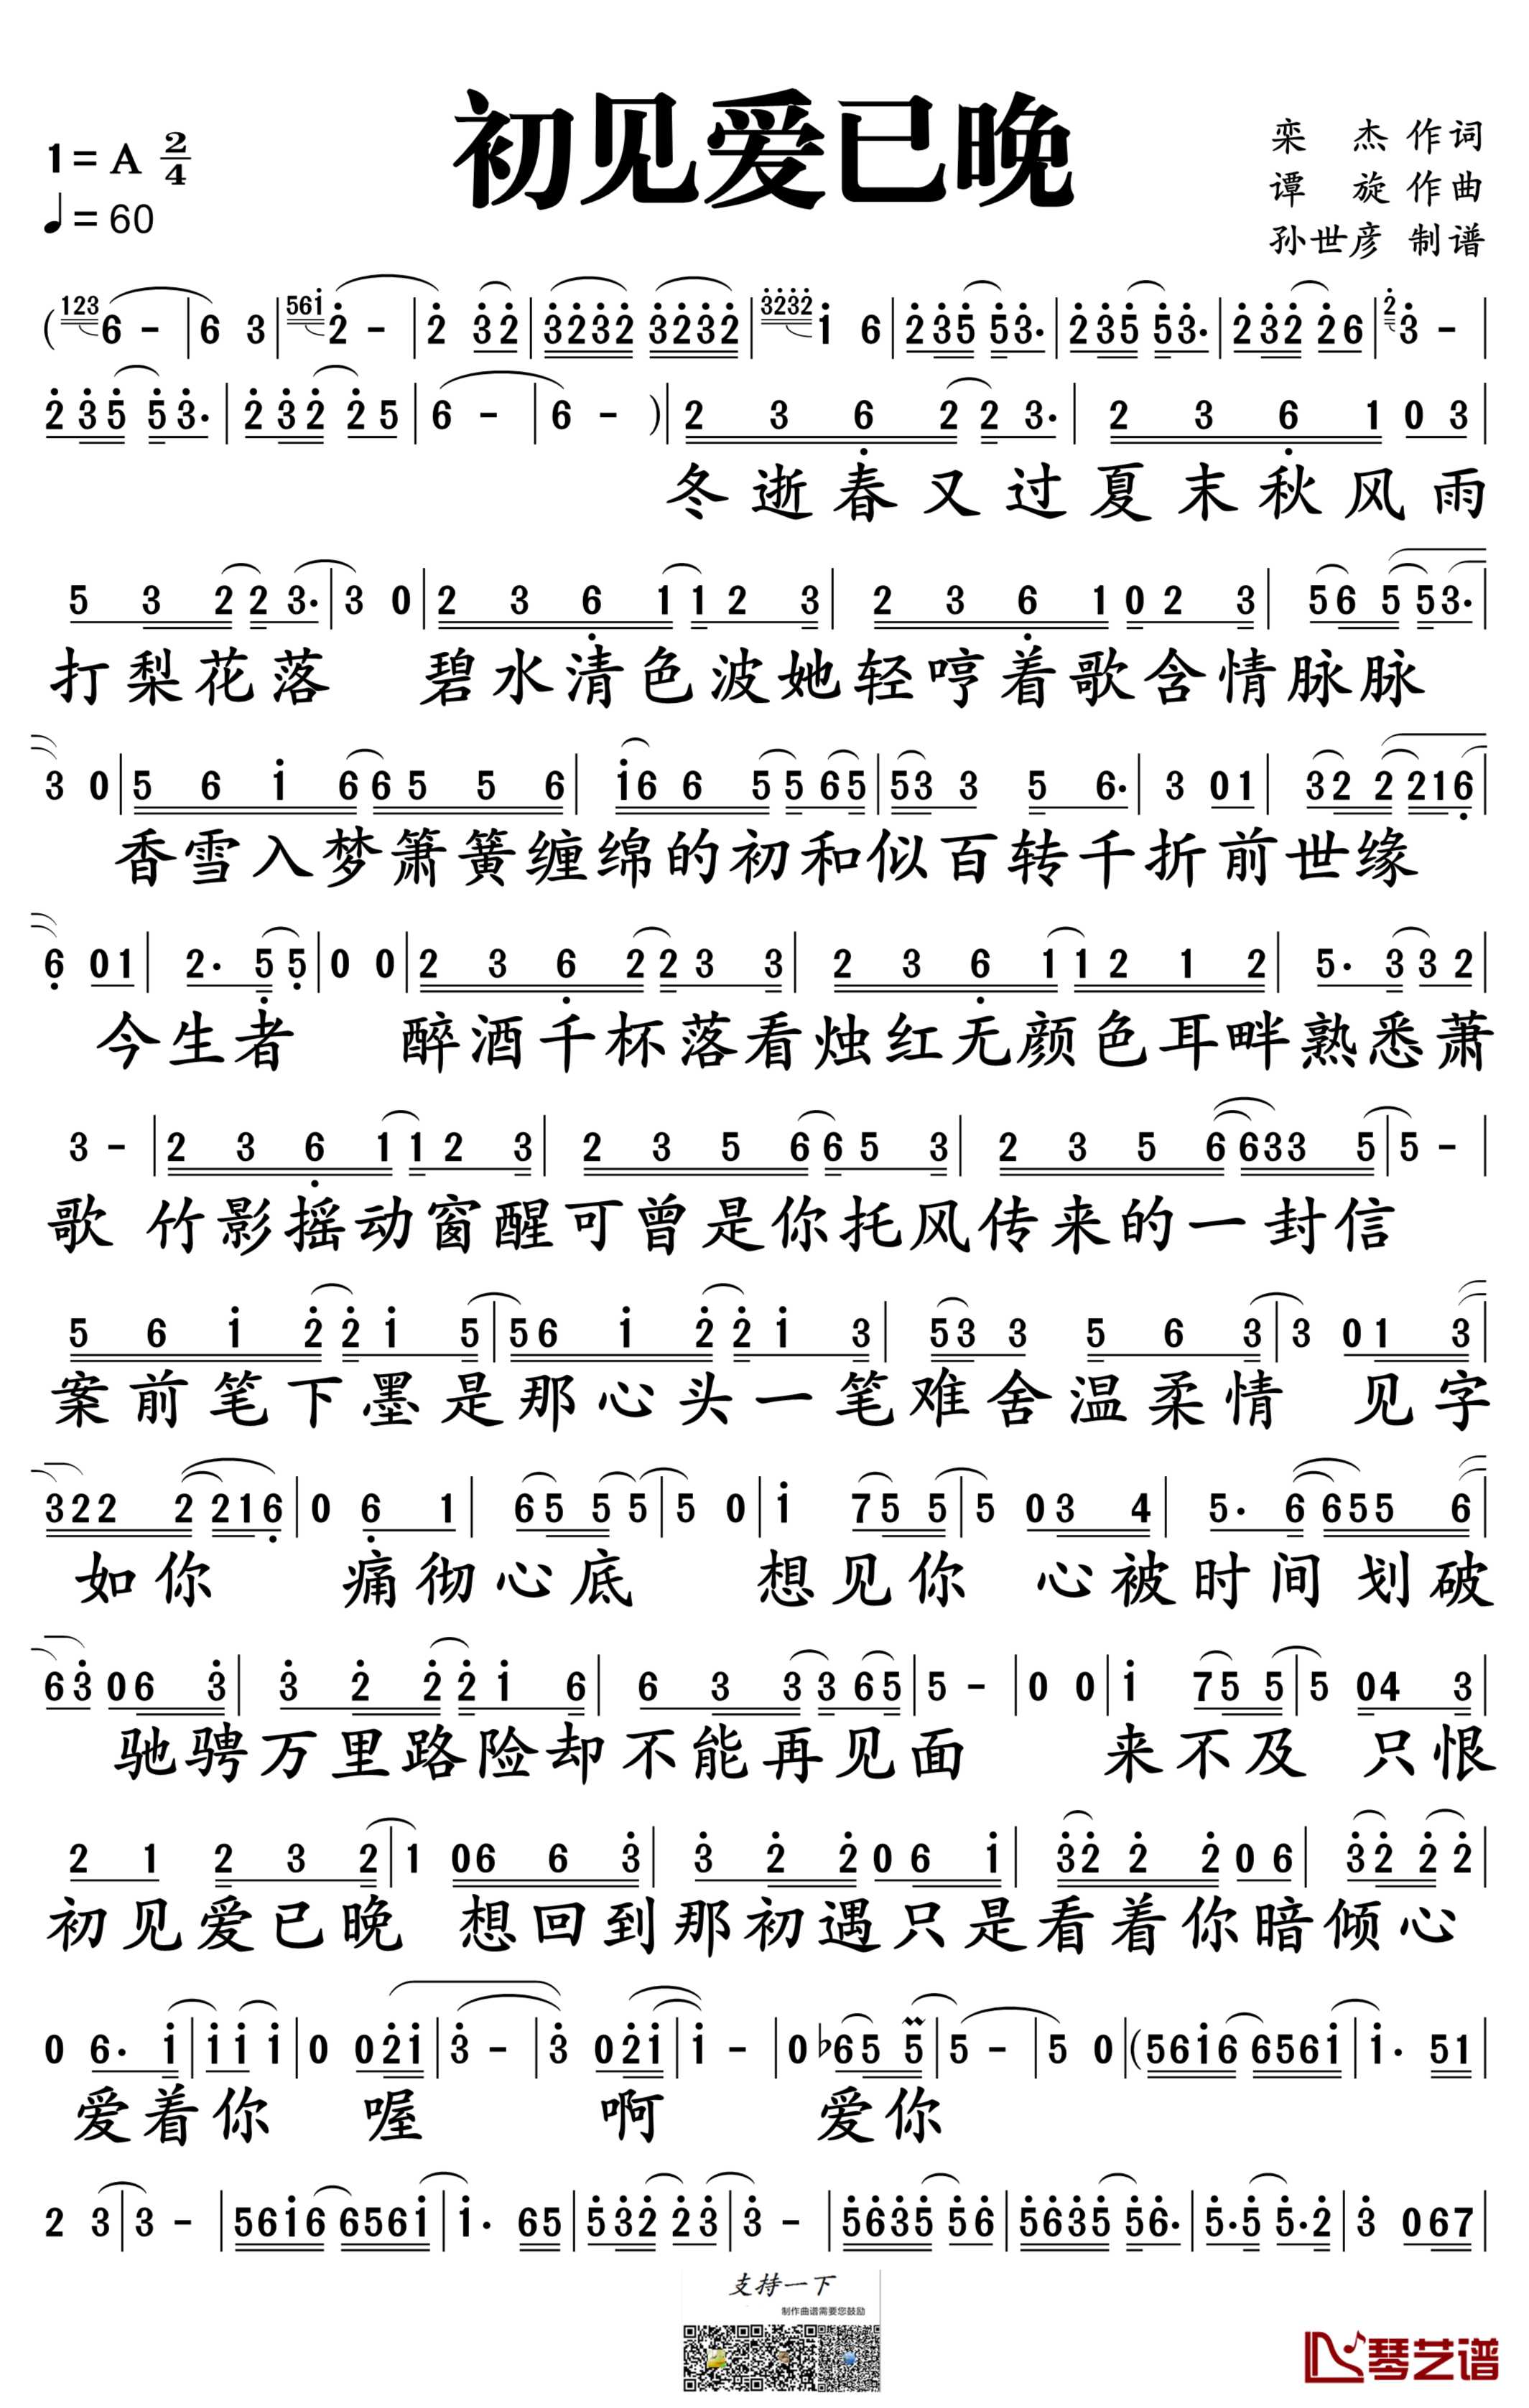 初见爱已晚
1=A 2/4
♩=60
栾 杰 作词
谭 旋 作曲
孙世彦 制谱
( 123 6 - | 6 3 | 561̇ 2̇ - | 2̇ 3̇2̇ | 3̇2̇3̇2̇ 3̇2̇3̇2̇ | 3̇2̇3̇2̇ 1̇ 6 | 2̇3̇5̇ 5̇3̇. | 2̇3̇5̇ 5̇3̇. | 2̇3̇2̇ 2̇6 | 2̇ 3̇ - |
2̇3̇5̇ 5̇3̇. | 2̇3̇2̇ 2̇5 | 6 - | 6 - ) | 2 3 6̣ 2 2 3. | 2 3 6̣ 1 0 3 |
冬逝春又过夏末秋风雨
5 3 2 2 3. | 3 0 | 2 3 6̣ 1 1 2 3 | 2 3 6̣ 1 0 2 3 | 56 5 53. |
打梨花落 碧水清色波她轻哼着歌含情脉脉
3 0 | 5 6 1̇ 6 6 5 5 6 | 1̇6 6 5 5 65 | 53 3 5 6. | 3 01 | 32 2 216̣ |
香雪入梦箫簧缠绵的初和似百转千折前世缘
6̣ 01 | 2. 5̣ 5̣ | 0 0 | 2 3 6̣ 2 2 3 3 | 2 3 6̣ 1 1 2 1 2 | 5. 3 3 2 |
今生者 醉酒千杯落看烛红无颜色耳畔熟悉萧
3 - | 2 3 6̣ 1 1 2 3 | 2 3 5 6 6 5 3 | 2 3 5 6 633 5 | 5 - |
歌 竹影摇动窗醒可曾是你托风传来的一封信
5 6 1̇ 2̇ 2̇ 1̇ 5 | 56 1̇ 2̇ 2̇ 1̇ 3 | 53 3 5 6 3 | 3 01 3 |
案前笔下墨是那心头一笔难舍温柔情 见字
322 2 216̣ | 0 6̣ 1 | 65 5 5 | 5 0 | 1̇ 75 5 | 5 03 4 | 5. 6 655 6 |
如你 痛彻心底 想见你 心被时间划破
63̇ 06 3̇ | 3̇ 2̇ 2̇ 2̇ 1̇ 6 | 6 3 3 3 65 | 5 - | 0 0 | 1̇ 75 5 | 5 04 3 |
驰骋万里路险却不能再见面 来不及 只恨
2 1 2 3 2 | 1 06 6 3̇ | 3̇ 2̇ 2̇ 0 6 1̇ | 3̇2̇ 2̇ 2̇ 0 6 | 3̇2̇ 2̇ 2̇ |
初见爱已晚 想回到那初遇只是看着你暗倾心
0 6. 1̇ | 1̇ 1̇ 1̇ | 0 02̇1̇ | 3̇ - | 3̇ 02̇1̇ | 1̇ - | 0 ♭65 5 | 5 - | 5 0 | ( 561̇6 6561̇ | 1̇. 51 |
爱着你 喔 啊 爱你
2 3 | 3 - | 561̇6 6561̇ | 1̇. 65 | 5̇3̇2̇ 2̇3̇ | 3̇ - | 5̇6̇3̇5̇ 5̇6̇ | 5̇6̇3̇5̇ 5̇6̇. | 5̇.5̇ 5̇.2̇ | 3̇ 067 |
支持一下
制作曲谱需要您鼓励
琴艺谱